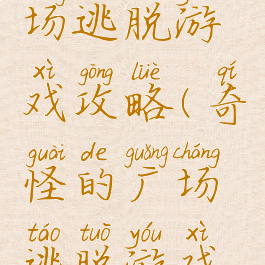 场逃脱游
xì gōng lüè qí
戏攻略(奇
guài de guǎng cháng
怪的广场
táo tuō yóu xì
逃脱游戏